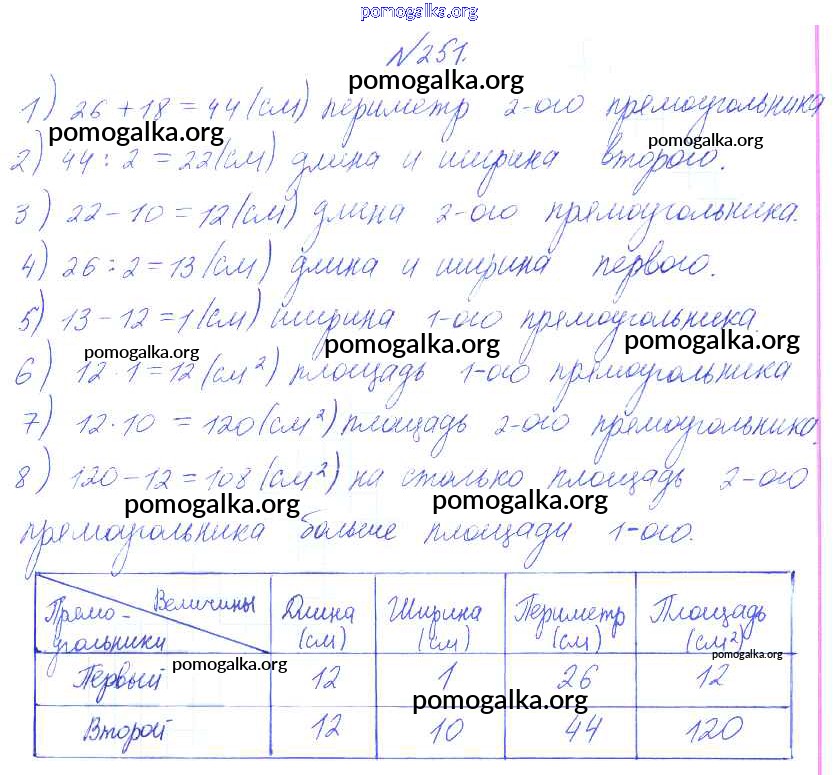 pomogalka.org
№251.
pomogalka.org
1) 26 + 18 = 44 (см) периметр 2-ого прямоугольника
pomogalka.org
pomogalka.org
2) 44 : 2 = 22 (см) длина и ширина второго.
3) 22 - 10 = 12 (см) длина 2-ого прямоугольника.
4) 26 : 2 = 13 (см) длина и ширина первого.
5) 13 - 12 = 1 (см) ширина 1-ого прямоугольника.
pomogalka.org pomogalka.org pomogalka.org
6) 12 · 1 = 12 (см²) площадь 1-ого прямоугольника
7) 12 · 10 = 120 (см²) площадь 2-ого прямоугольника.
8) 120 - 12 = 108 (см²) на столько площадь 2-ого
pomogalka.org pomogalka.org
прямоугольника больше площади 1-ого.
Величины
Прямо-
угольники
Длина (см) Ширина (см) Периметр (см) Площадь (см²)
pomogalka.org pomogalka.org
Первый 12 1 26 12
pomogalka.org
Второй 12 10 44 120